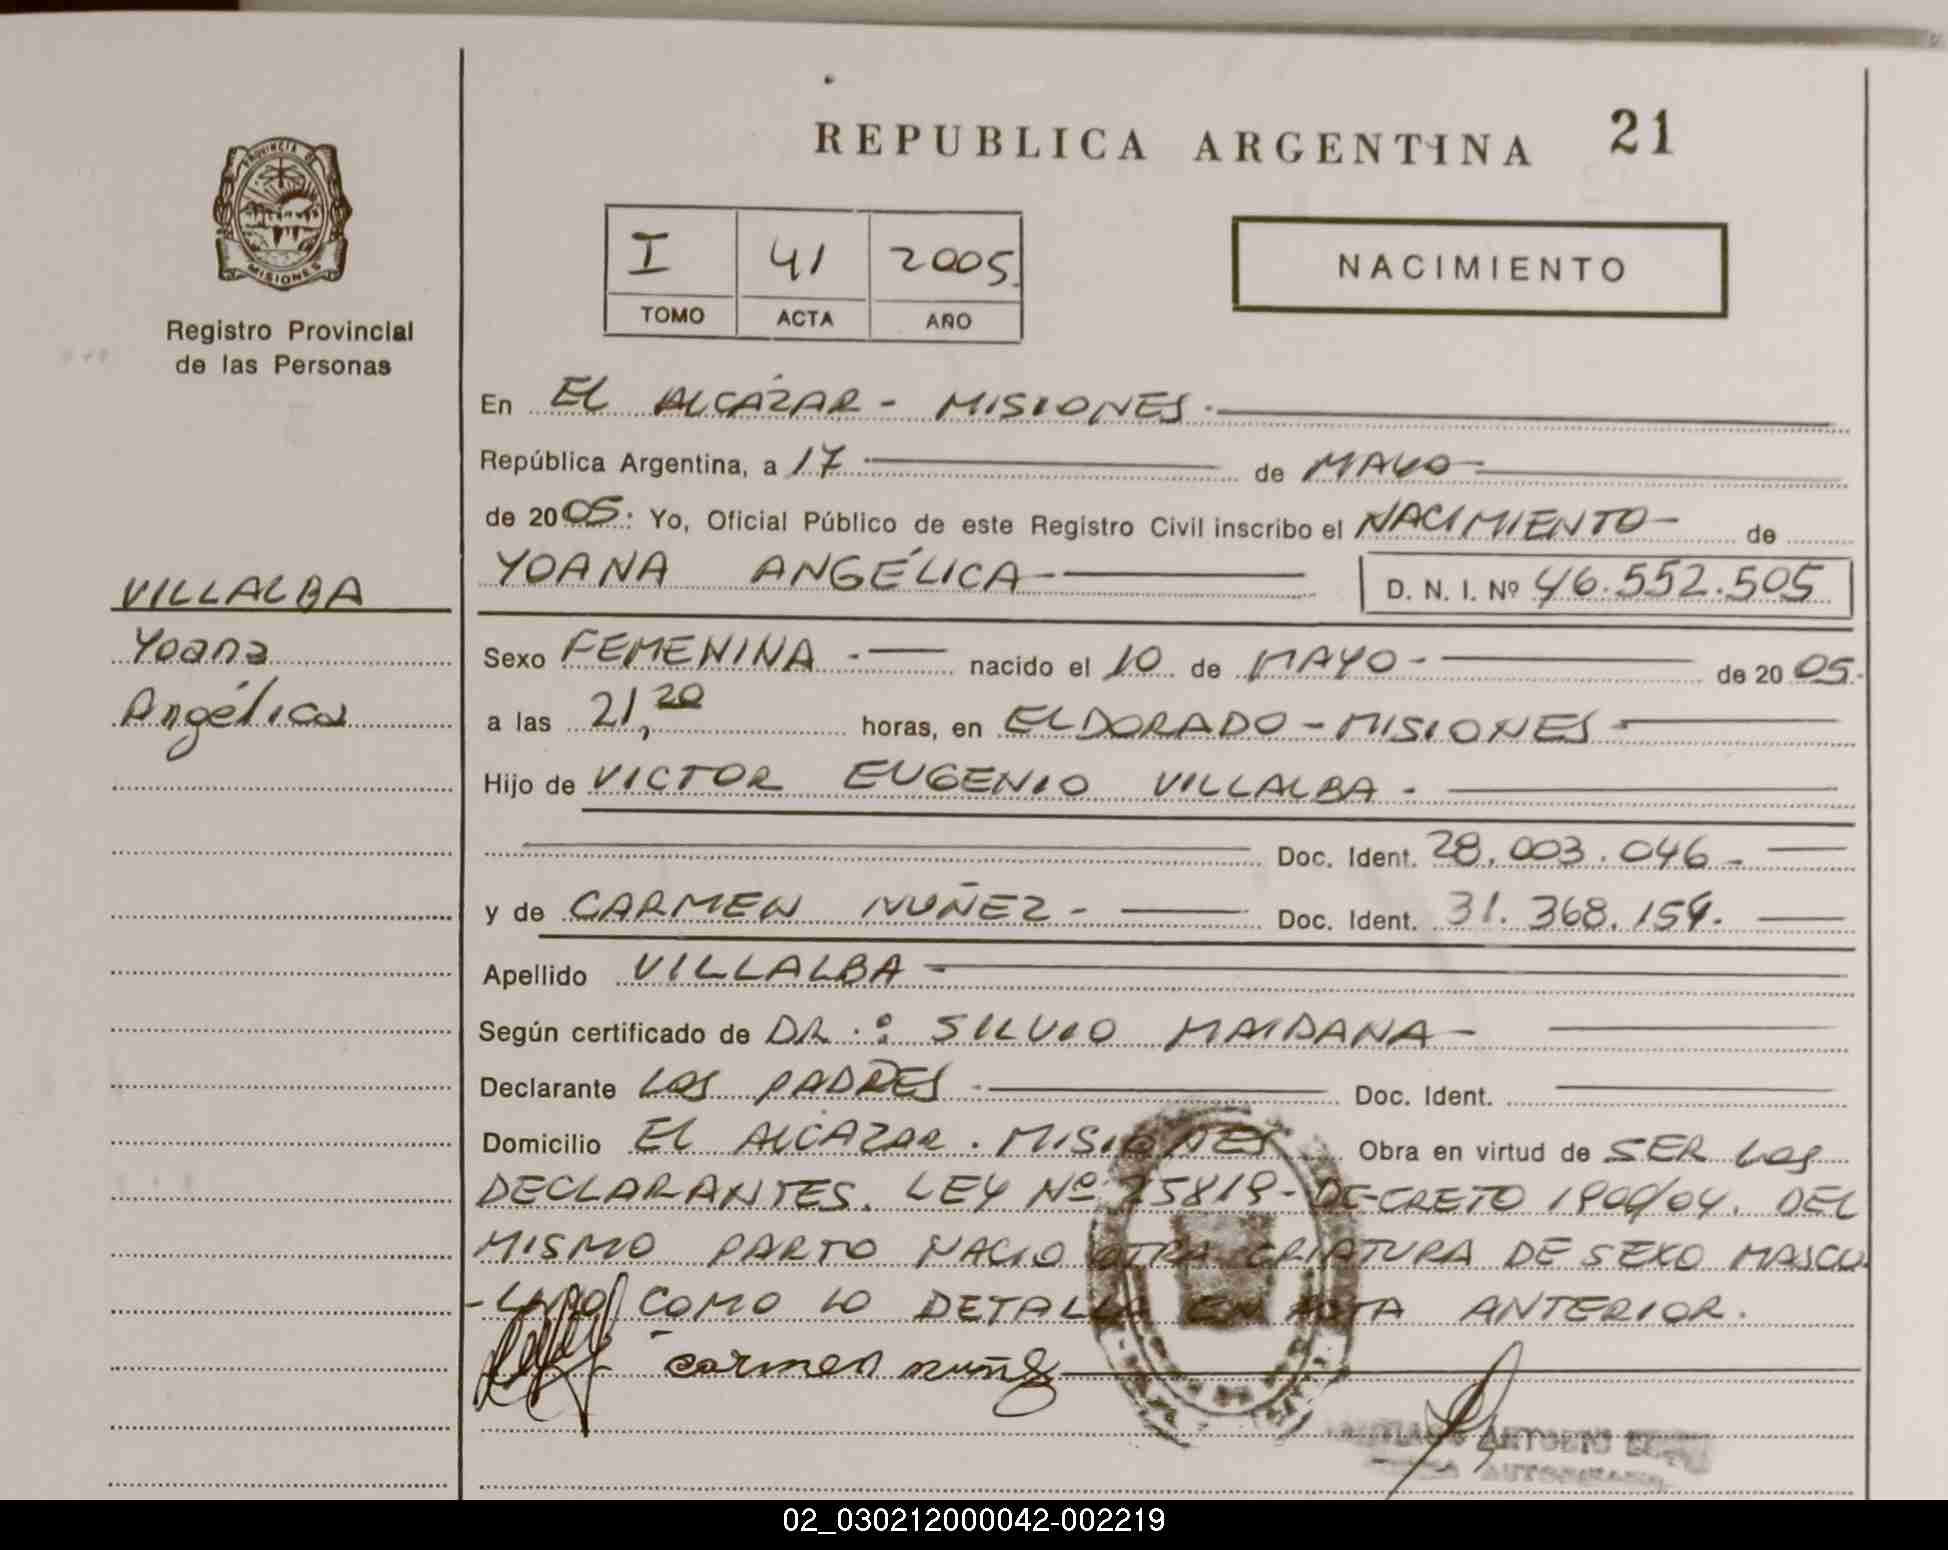 REPUBLICA ARGENTINA 21
PROVINCIA DE
MISIONES
Registro Provincial
de las Personas
I 41 2005.
TOMO ACTA AÑO
NACIMIENTO
En EL ALCÁZAR - MISIONES.
República Argentina, a 17 de MAYO
de 2005. Yo, Oficial Público de este Registro Civil inscribo el NACIMIENTO - de
YOANA ANGÉLICA D. N. I. Nº 46.552.505
VILLALBA
Yoana
Angélica
Sexo FEMENINA.- nacido el 10 de MAYO - de 2005.
a las 21,20 horas, en ELDORADO - MISIONES
Hijo de VICTOR EUGENIO VILLALBA.
Doc. Ident. 28.003.046 -
y de CARMEN NUÑEZ - Doc. Ident. 31.368.154.
Apellido VILLALBA -
Según certificado de DR.: SILVIO MAIDANA -
Declarante LOS PADRES. Doc. Ident.
Domicilio EL ALCAZAR. MISIONES Obra en virtud de SER LOS
DECLARANTES. LEY Nº 25819 - DECRETO 1900/04. DEL
MISMO PARTO NACIO OTRA CRIATURA DE SEXO MASCU
-LINO COMO LO DETALLA EN ACTA ANTERIOR.
carmen nuñez
ANTONIO
02_030212000042-002219